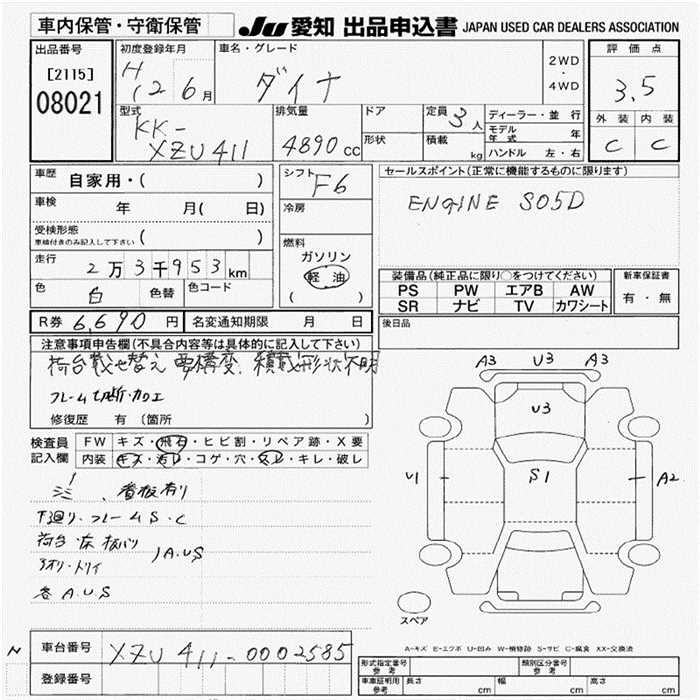 車内保管・守衛保管
JU 愛知 出品申込書 JAPAN USED CAR DEALERS ASSOCIATION
出品番号
[2115]
08021
初度登録年月
H12 6月
車名・グレード
ダイナ
2WD
・
4WD
評価点
3.5
外装 内装
C C
型式
KK-
XZU411
排気量
4890 cc
ドア
形状
定員 3人
積載 kg
ディーラー・並行
モデル年式 年
ハンドル 左・右
車歴 自家用・( )
車検 年 月( 日)
受検形態
車検付きのみ記入して下さい ( )
走行 2万3千953km
色 白 色替 色コード
シフト F6
冷房
燃料
ガソリン
軽油
( )
セールスポイント(正常に機能するものに限ります)
ENGINE S05D
装備品(純正品に限り○をつけてください)
PS PW エアB AW
SR ナビ TV カワシート
新車保証書
有・無
R券 6,690円 名変通知期限 月 日
後日品
注意事項申告欄(不具合内容等は具体的に記入して下さい)
荷台載せ替え 要構変、積載形状不明
フレーム切断・加工
修復歴 有 (箇所 )
検査員
記入欄
FW キズ・飛石・ヒビ割・リペア跡・X要
内装 キズ・汚レ・コゲ・穴・スレ・キレ・破レ
看板有り
下廻り・フレームS・C
荷台・床板バリ
アオリ・トリイ
A.U.S
巻A.U.S
A3 U3 A3
U3
U1 S1 A2
スペア
A-キズ E-エクボ U-凹み W-補修跡 S-サビ C-腐食 XX-交換済
車台番号 XZU411-0002585
登録番号
N
形式指定番号
参考
類別区分番号
参考
車庫証明用
参考
長さ cm 幅 cm 高さ cm